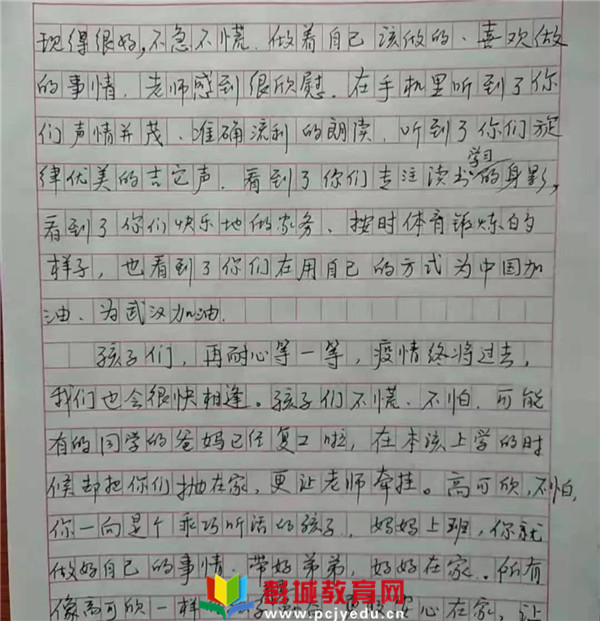 现得很好,不急不慌.做着自己该做的、喜欢做
的事情.老师感到很欣慰.在手机里听到了你
们声情并茂、准确流利的朗读.听到了你们旋
律优美的吉它声.看到了你们专注读书学习的身影,
看到了你们快乐地做家务、按时体育锻炼的
样子,也看到了你们在用自己的方式为中国加
油.为武汉加油.
孩子们,再耐心等一等,疫情终将过去,
我们也会很快相逢。孩子们不慌.不怕.可能
有的同学的爸妈已经复工啦,在本该上学的时
候却把你们抛在家,更让老师牵挂。高可欣,不怕,
你一向是个乖巧听话的孩子,妈妈上班,你就
做好自己的事情.带好弟弟,好好在家.所有
像高可欣一样 心在家,让
彭城教育网
www.pcjyedu.cn